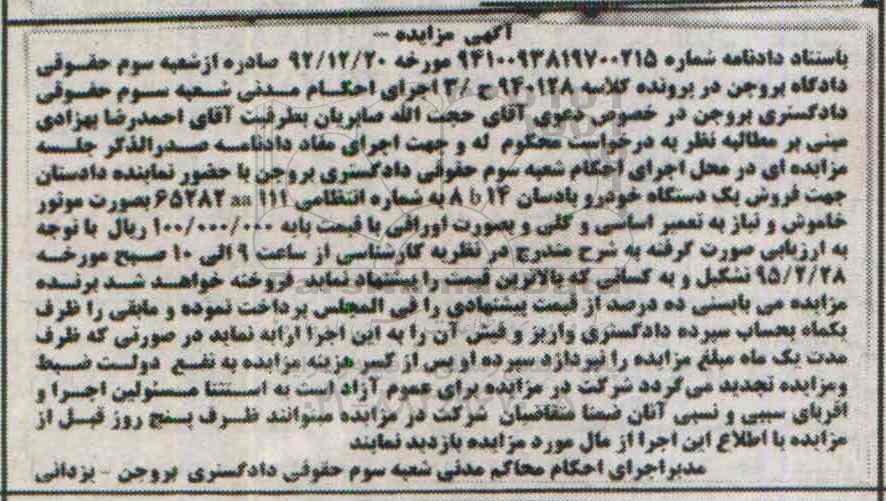 آگهی مزایده –
باستناد دادنامه شماره ۹۴۱۰۰۹۳۸۱۹۷۰۰۲۱۵ مورخه ۹۲/۱۲/۲۰ صادره ازشعبه سوم حقوقی
دادگاه بروجن در پرونده کلاسه ۹۴۰۱۲۸ ج /۳ اجرای احکام مدنی شعبه سوم حقوقی
دادگستری بروجن در خصوص دعوی آقای حجت الله صابریان بطرفیت آقای احمدرضا بهزادی
مبنی بر مطالبه نظر به درخواست محکوم له و جهت اجرای مفاد دادنامه صدرالذکر جلسه
مزایده ای در محل اجرای احکام شعبه سوم حقوقی دادگستری بروجن با حضور نماینده دادستان
جهت فروش یک دستگاه خودرو بادسان ۱۴ b ۸ به شماره انتظامی ۱۱۱ aa ۶۵۲۸۲ بصورت موتور
خاموش و نیاز به تعمیر اساسی و کلی و بصورت اوراقی با قیمت پایه ۱۰۰/۰۰۰/۰۰۰ ریال با توجه
به ارزیابی صورت گرفته به شرح مندرج در نظریه کارشناسی از ساعت ۹ الی ۱۰ صبح مورخه
۹۵/۲/۲۸ تشکیل و به کسانی که بالاترین قیمت را پیشنهاد نماید فروخته خواهد شد برنده
مزایده می بایستی ده درصد از قیمت پیشنهادی را فی المجلس پرداخت نموده و مابقی را ظرف
یکماه بحساب سپرده دادگستری واریز و فیش آن را به این اجرا ارایه نماید در صورتی که ظرف
مدت یک ماه مبلغ مزایده را نپردازد سپرده او پس از کسر هزینه مزایده به نفع دولت ضبط
ومزایده تجدید می گردد شرکت در مزایده برای عموم آزاد است به استثنا مسئولین اجرا و
اقربای سببی و نسبی آنان ضمنا متقاضیان شرکت در مزایده میتوانند ظرف پنج روز قبل از
مزایده با اطلاع این اجرا از مال مورد مزایده بازدید نمایند
مدیراجرای احکام محاکم مدنی شعبه سوم حقوقی دادگستری بروجن – یزدانی